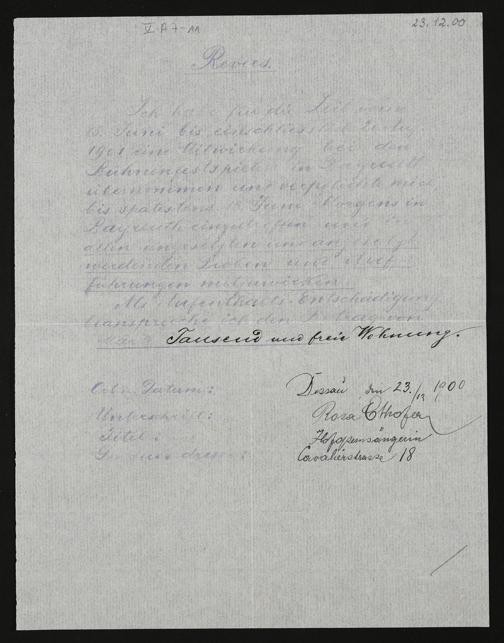 V A 7-11
23.12.00
Revers.
Ich habe für die Zeit vom
15. Juni bis einschliesslich
1901 eine Mitwirkung bei den
Bühnenfestspielen in Bayreuth
übernommen und verpflichte mich
bis spätestens 15. Juni Morgens in
Bayreuth einzutreffen und
allen angesetzten und angesetzt
werdenden Proben und Auf-
führungen mitzuwirken.
Als Aufenthalts-Entschädigung
beanspruche ich den Betrag von
Mark Tausend und freie Wohnung.
Ort u. Datum: Dessau den 23./12 1900
Unterschrift: Rosa
Titel: Hofopernsängerin
Cavalierstrasse 18